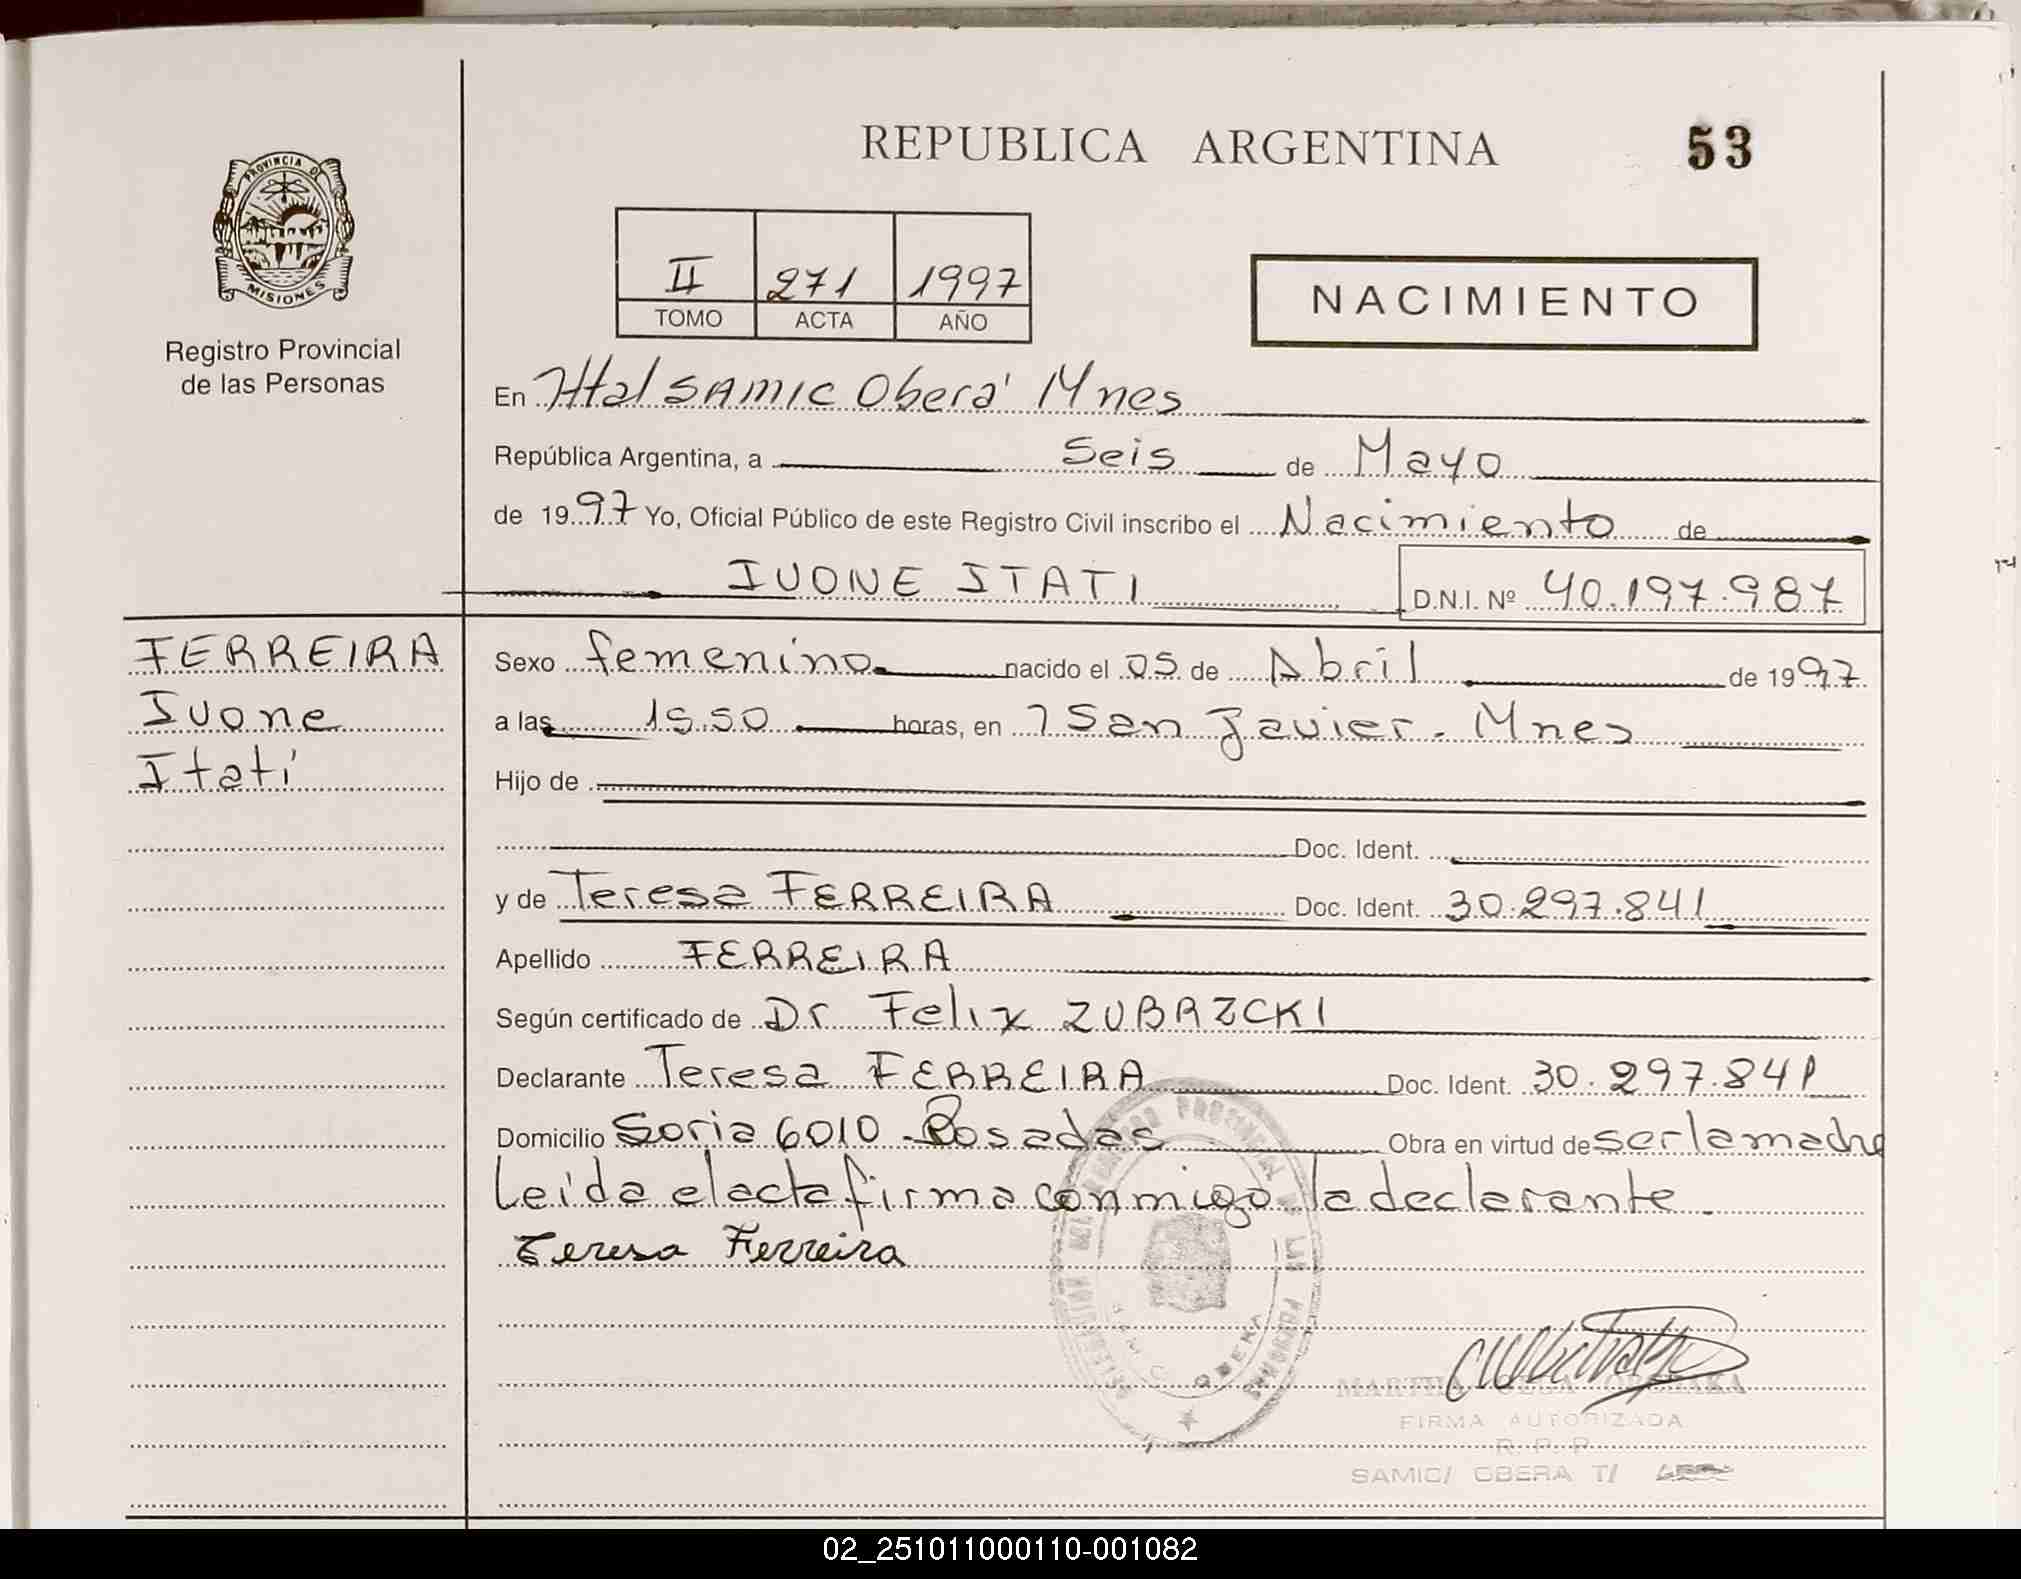 REPUBLICA ARGENTINA
53
PROVINCIA DE
MISIONES
Registro Provincial
de las Personas
II 271 1997
TOMO ACTA AÑO
NACIMIENTO
En Htal SAMIC Oberá Mnes
República Argentina, a Seis de Mayo
de 1997 Yo, Oficial Público de este Registro Civil inscribo el Nacimiento de
IVONE ITATI D.N.I. Nº 40.197.987
FERREIRA
Ivone
Itatí
Sexo femenino nacido el 05 de Abril de 1997
a las 15.50 horas, en San Javier. Mnes
Hijo de
Doc. Ident.
y de Teresa FERREIRA Doc. Ident. 30.297.841
Apellido FERREIRA
Según certificado de Dr Felix ZUBRZCKI
Declarante Teresa FERREIRA Doc. Ident. 30.297.841
Domicilio Soria 6010 - Posadas Obra en virtud de ser la madre
Leída el acta firma conmigo la declarante.
Teresa Ferreira
MARTHA
FIRMA AUTORIZADA
R. P. P.
SAMIC/ OBERA T/
02_251011000110-001082